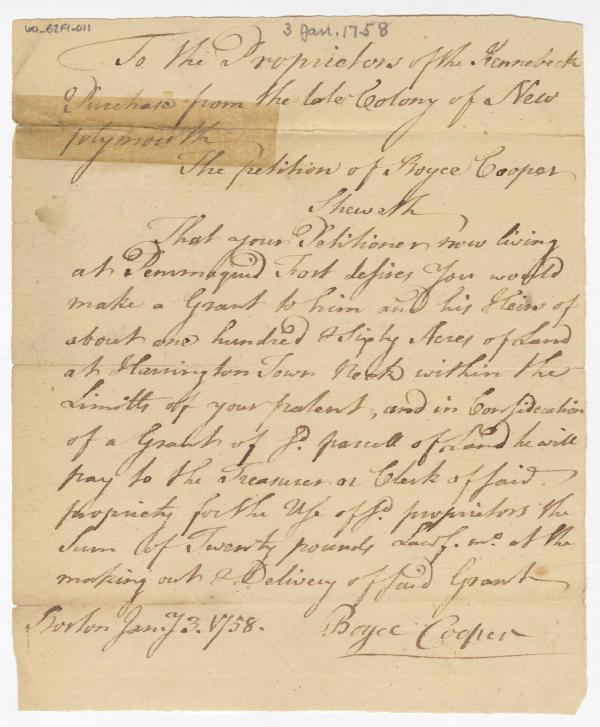 6a_62F1_011
3 Jan. 1758
To the Proprietors of the Kennebeck
Purchase from the late Colony of New
Plymouth
The petition of Boyce Cooper
Sheweth
That your Petitioner now living
at Pemmaquid Fort desires You would
make a Grant to him and his Heirs of
about one hundred & Sixty Acres of Land
at Harrington Town Neck within the
Limitts of your patent, and in Consideration
of a Grant of Sd. parcell of Land he will
pay to the Treasurer or Clerk of said
propriety for the Use of Sd. proprietors the
Sum of Twenty pounds Lawf. mo. at the
making out & Delivery of said Grant
Boston Jany. 3. 1758.
Boyce Cooper